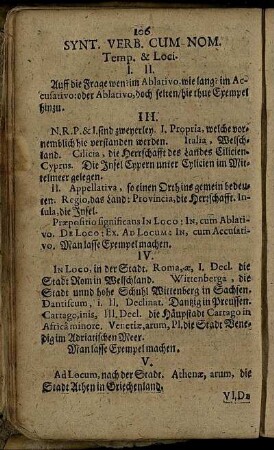 106
SYNT. VERB. CUM NOM.
Temp. & Loci.
I. II.
Auff die Frage wen: im Ablativo. wie lang: im Ac-
cusativo: oder Ablativo, doch selten, hie thue Exempel
hinzu.
III.
N.R.P. & I. sind zweyerley. I. Propria, welche vor-
nemblich hie verstanden werden. Italia, Welsch-
land. Cilicia, die Herrschafft des Landes Cilicien.
Cyprus. Die Insel Cypern unter Cylicien im Mit-
telmeer gelegen.
II. Appellativa, so einen Orth ins gemein bedeu-
ten. Regio, das Land: Provincia, die Herrschafft. In-
sula, die Insel.
Præpositio significans IN LOCO: IN, cum Ablati-
vo. DE LOCO: EX. AD LOCUM: IN, cum Accusati-
vo. Man lasse Exempel machen.
IV.
IN LOCO. in der Stadt. Roma, æ, I. Decl. die
Stadt Rom in Welschland. Wittenberga, die
Stadt unnd hohe Schuhl Wittenberg in Sachsen.
Dantiscum, i. II, Declinat. Dantzig in Preussen.
Cartago, inis, III, Decl. die Häuptstadt Cartago in
Africâ minore. Venetiæ, arum, Pl. die Stadt Vene-
dig im Adriatischen Meer.
Man lasse Exempel machen.
V.
AD LOCUM, nach der Stadt. Athenæ, arum, die
Stadt Athen in Griechenland.
VI, De